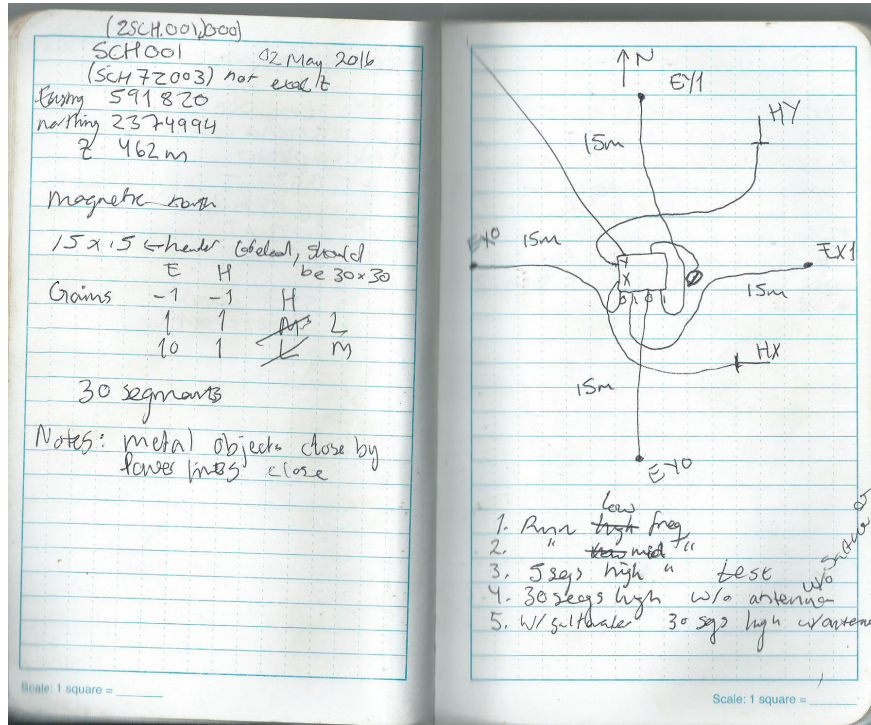 (2SCH.001,000)
SCH001 02 May 2016
(SCH72003) not exact
Easting 591820
northing 2374994
Z 462m
Magnetic north
15 x 15 ← header labeled, should
be 30x30
E H
Gains -1 -1 H
1 1 M L
10 1 L M
30 segments
Notes: metal objects close by
power lines close
Scale: 1 square =
N
EY1
HY
15m
EX0 15m
EX1
Y
X
0 1 0 1
15m
HX
15m
EY0
low
1. Run high freq
2. " low mid "
3. 5 segs high " test
4. 30 segs high w/o antenna w/o saltwater
5. W/ saltwater 30 segs high w/antenn
Scale: 1 square =